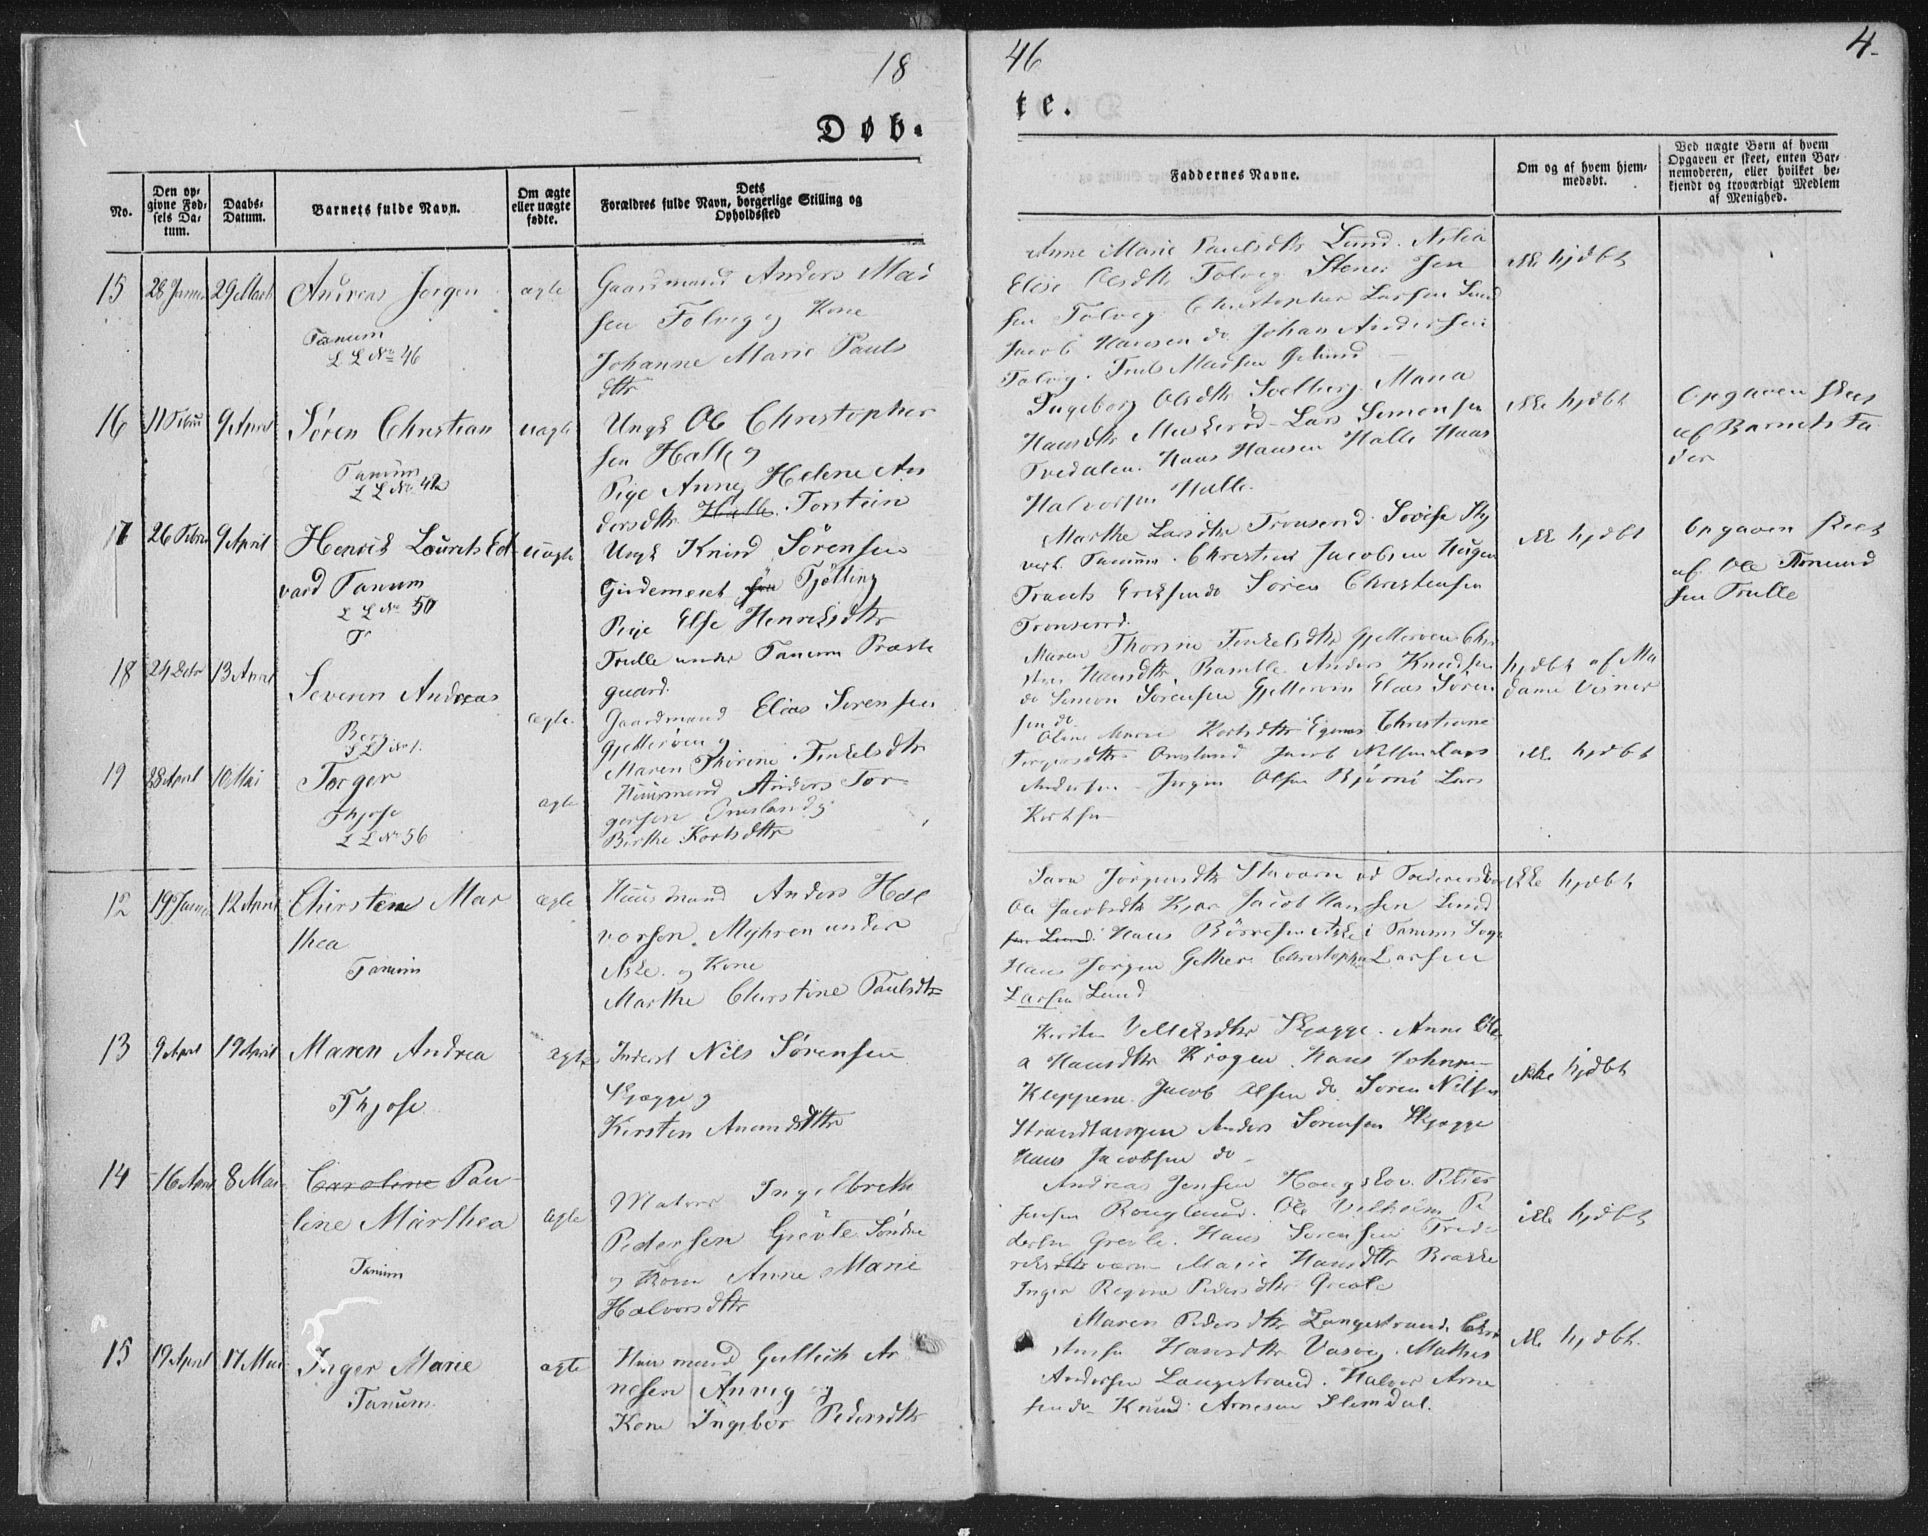 18 46 4.
Døb- te.
No.
Den op-
givne Fød-
sels Da-
tum.
Daabs-
Datum.
Barnets fulde Navn.
Om ægte
eller uægte
fødte.
Dets
Forældres fulde Navn, borgerlige Stilling og
Opholdssted
Faddernes Navne.
Om og af hvem hjem-
medøbt.
Ved uægte Børn af hvem
Opgaven er skeet, enten Bar-
nemoderen, eller hvilket be-
kjendt og troværdigt Medlem
af Menighed.
15 28 Januar 29 Marts Andreas Jørgen ægte
Tanum
L L No 46
Gaardmand Anders Mad
sen Tolveg og Kone
Johanne Marie Pauls
dtr
Anne Marie Paulsdtr Lund
Elise Olsdtr Tolveg Stener Jen
sen Tolveg Christopher Larsen Lund
Jacob Hansen do Johan Andersen
Tolvig. Truls Madsen
ikke hjdbt
16 11 Febru 9 April Søren Christian uægte
Tanum
L L No 42
Ungk Ole Christopher
sen Halle og
Pige Anne Helene An
dersdtr Halle Torstein
Ingeborg Olsdtr Solberg. Maria
Hansdtr Muskerød Lars Simonsen
Tvedalen. Hans Hansen Halle Hans
Halvorsen Halle.
ikke hjdbt
Opgaven skeet
af Barnets Fa
der
17 26 Febru 9 April Henrik Laurits Ed uægte
vard Tanum
L L No 50
Ungk Knud Sørensen
Gusdemeret Tjølling
Pige Else Henriksdtr
Trulle under Tanum Præste
gaard.
Marthe Larsdtr Tronserød
Tanum. Christine Jacobsen Haugen
Traaets Eriksen do Søren Christensen
Tronserød.
ikke hjdbt
Opgaven skeet
af Ole Amund
sen Trulle
18 24 Decbr 13 April Severin Andreas ægte.
Berg
L L No 1.
Gaardmand Elias Sørensen
Gjetterøen og
Maren Thorine Tinkelsdtr
Maren Thorine Tinkelsdtr Gjetterøen
Hansdtr Bamble. Anders Knudsen
do Simon Sørensen Gjetterøen Elias Søren
sen do
hjdbt af Ma
dame Visner
19 28 April 10 Mai Torger ægte
Thjose
L L No 56
Huusmand Anders Tor
gersen Omsland og
Birthe Kortsdtr
Oline Marie Kortsdtr Christiane
Torgersdtr Omsland Jacob Nilsen Lars
Andersen Jørgen Olsen Bjørnø Lars
Kortsen
ikke hjdbt
12 19 Januar 12 April Chirsten Mar ægte
thea
Tanum
Huusmand Anders Hal
vorsen Myhren under
Aske og Kone
Marthe Christine Paulsdtr
Sara Jørgensdtr Stavern ved Frederiksv
Ole Jacobsdtr Kjær Jacob Hansen Lund
Hans Børresen Aske i Tanum Sogn
Hans Jørgen Gether Christopher Larsen
Larsen Lund
ikke hjdbt
13 9 April 19 April Maren Andrea ægte
Thjose
Inderst Nils Sørensen
Skjøgge og
Kirsten Amundsdtr
Kirsten Skjøgge. Anne
Hansdtr Krogen. Hans
Kleppene. Jacob Olsen do Søren Nilsen
Strandtangen Anders Sørensen Skjøgge
Hans Jacobsen do
ikke hjdbt
14 16 April 8 Mai Caroline Pau
line Marthea ægte
Tanum
Matros Ingelbreth
Pedersen Greåte Søndre
og Kone Anne Marie
Halvorsdtr
Andreas Jensen Peter
Jensen Rouglund. Ole Vilhelm Pe
dersen. Hans Sørensen Frede
riksværn Marie Hansdtr Brække
Inger Regine Pedersdtr
ikke hjdbt
15 19 April 17 Mai Inger Marie ægte
Tanum
Huusmand Gullich Ar
nesen Anvig og
Kone Ingebor Pedersdtr
Maren Pedersdtr Langestrand. Chri
stense Hansdtr Vasveg Mathis
Andersen Langestrand. Halvor Arne
sen do Knud Arnesen Slemdal.
ikke hjdbt